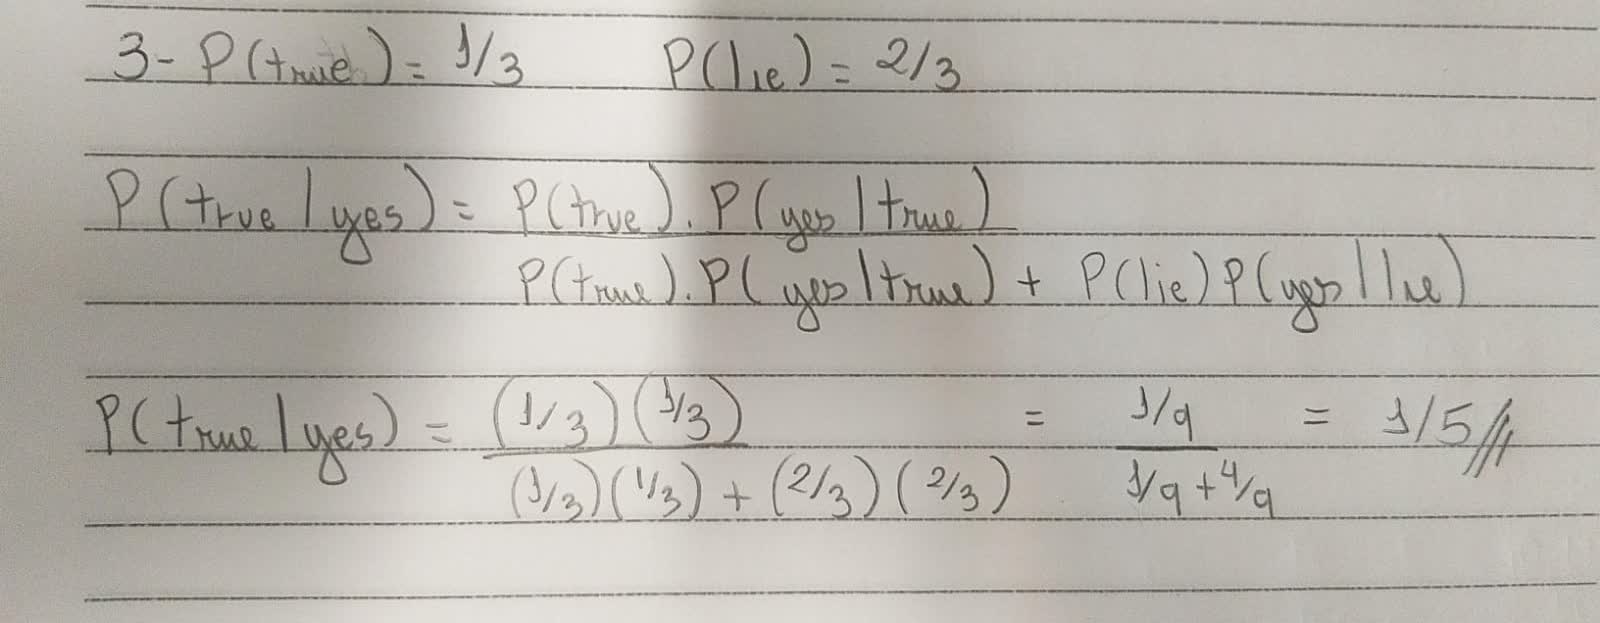 3- P(true) = 1/3 P(lie) = 2/3
P(true | yes) = P(true). P(yes | true)
P(true). P(yes | true) + P(lie) P(yes | lie)
P(true | yes) = (1/3)(1/3) = 1/9 = 1/5
(1/3)(1/3) + (2/3)(2/3) 1/9 + 4/9